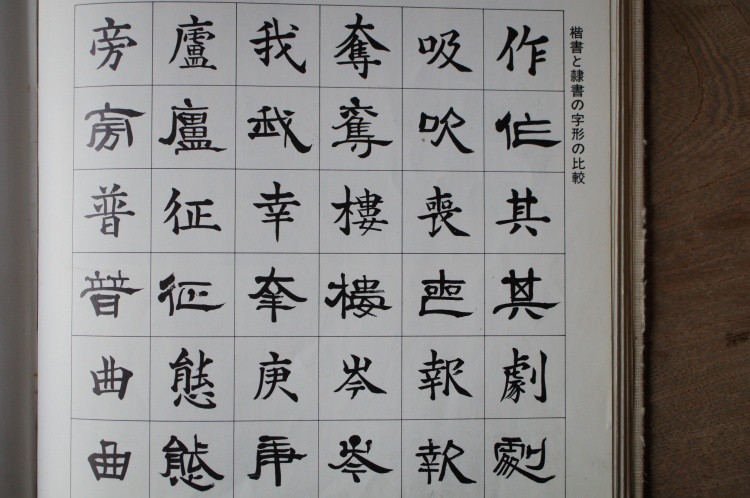 楷書と隷書の字形の比較
作作其其劇劇
吸吸喪喪報報
奪奪樓樓岑岑
我我幸幸庚庚
廬廬征征態態
旁旁普普曲曲